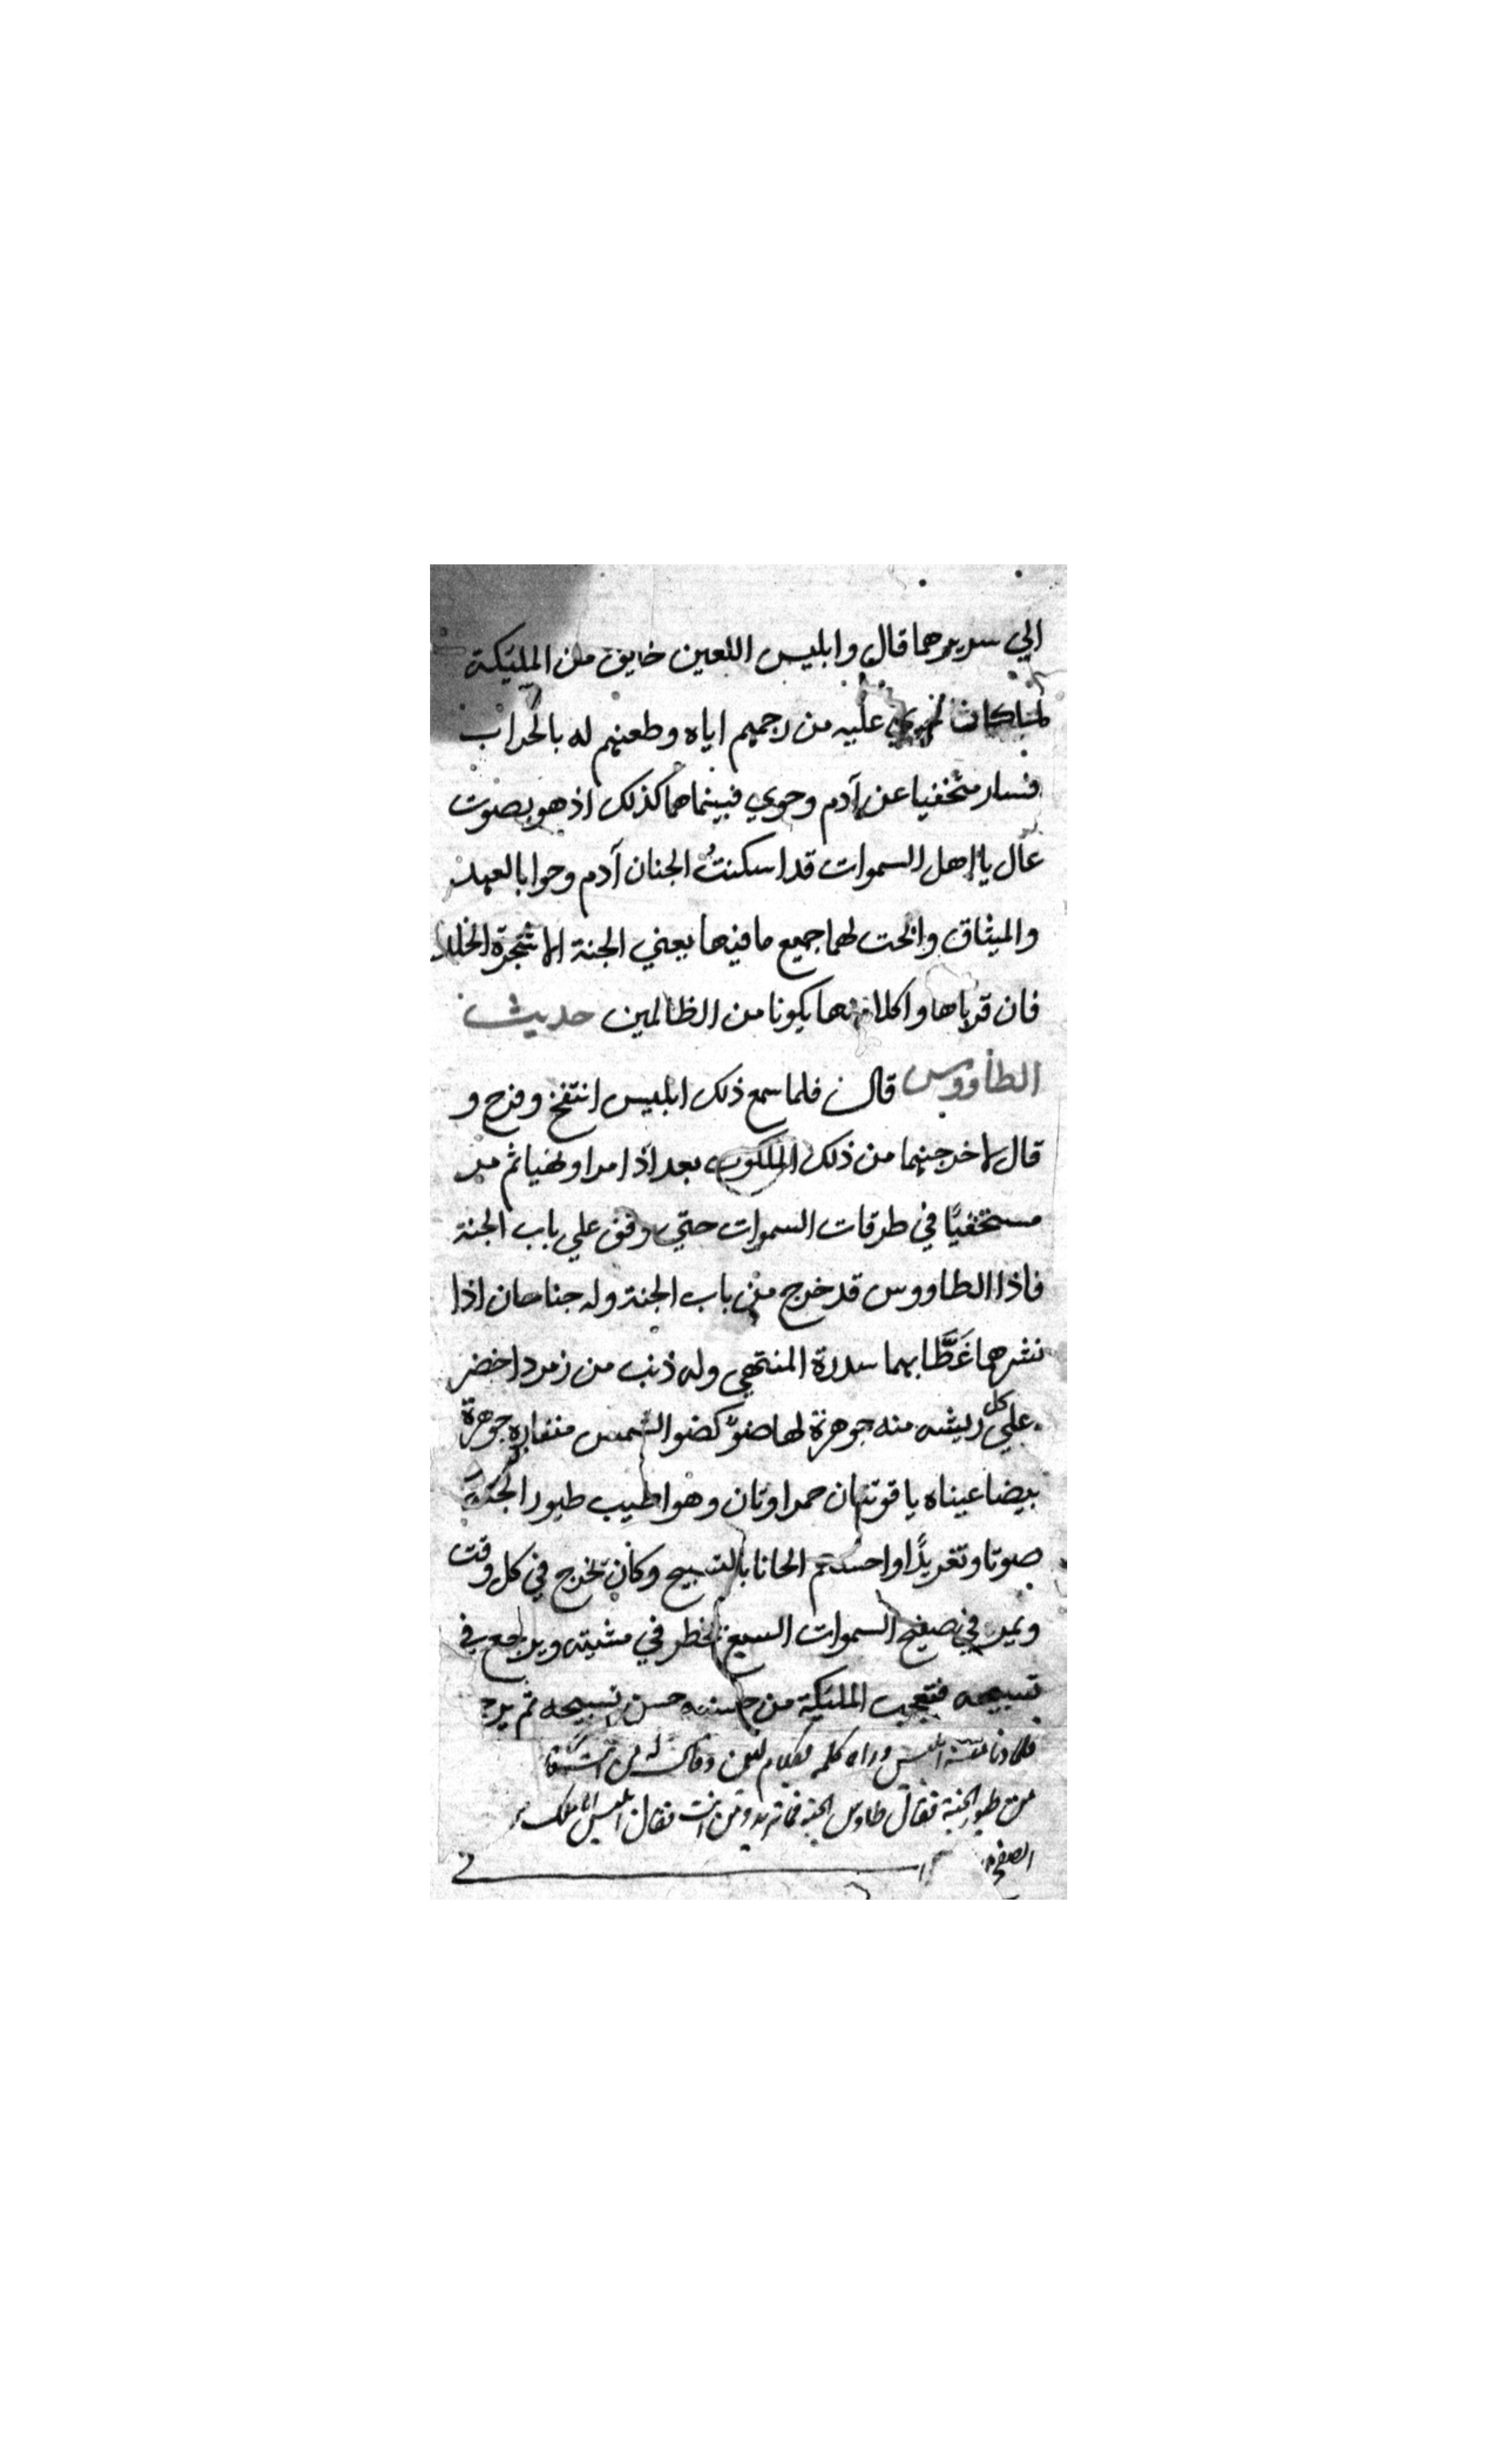 الي سريرهما قال وابليس اللعين خايف من المليكة
لما كان يجري عليه من رجمهم اياه وطعنهم له بالحراب
فسار متخفيا عن آدم وحوي فبينما هما كذلك اذ هو بصوت
عال يا اهل السموات قد اسكنتُ الجنان آدم وحوا بالعهد
والميثاق وابحت لهما جميع ما فيها يعني الجنة الا شجرة الخلد
فان قرباها واكلا منها يكونا من الظالمين حديث
الطاووس قال فلما سمع ذلك ابليس انتفخ وفرح و
قال لاخرجنهما من ذلك الملكوت بعد اذ امرا ونهيا ثم مر
مستخفيًا في طرقات السموات حتي وقف علي باب الجنة
فاذا الطاووس قد خرج من باب الجنة وله جناحان اذا
نشرهما غَطَّا بهما سدرة المنتهي وله ذنب من زمرد اخضر
علي كل ريشه منه جوهرة لها ضوٌ كضو الشمس منقاره جوهرة
بيضا عيناه ياقوتتان حمراوتان وهو اطيب طيور الجنة
صوتا وتغريدًا واحسنهم الحانا بالتسبيح وكان يخرج في كل وقت
ويمر في صفيح السموات السبع يخطر في مشيته ويرجع في
تسبيحه فتعجب المليكة من حسنه حسن تسبيحه ثم يرج
فلما دنا منه ابليس وراه كلمه بكلام لين وقال له من انت
من طيور الجنة فقال طاوس الجنة فما تريد ومن انت فقال ابليس انا ملك من
الصفح